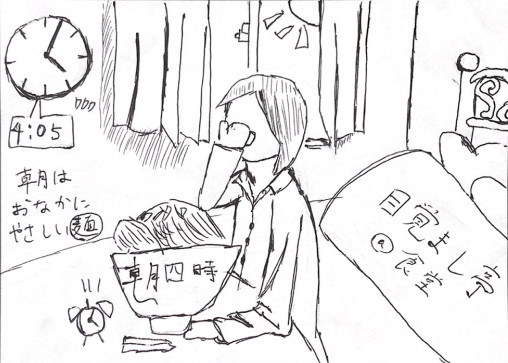 4:05
朝は
おなかに
やさしい麺
朝四時
目覚まし亭
@食堂